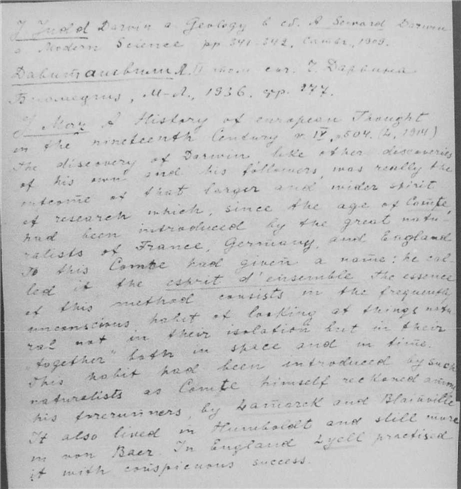 J Judd Darwin a. Geology b. A. Seward Darwin
a. Modern Science pp. 341-342, Cambr, 1909.
, М-Л., 1936, pp. 177.
J. A History of european Thought
in the nineteenth Century v. IV, (L, 1914)
The discovery of Darwin like other discoveries
of his own and his followers, was really the
outcome of that larger and wider spirit
of research which, since the age of Comte
had been introduced by the great natu-
ralists of France, Germany, and England
To this Comte had given a name; he cal-
led it the esprit d'ensemble The essence
of this method consists in the frequently
unconscious, habit of looking at things natu
ral not in their isolation but in their
"together" both in space and in time.
This habit had been introduced by such
naturalists as Comte himself reckoned among
his forerunners by Lamarck and Blainville
It also lived in Humboldt and still more
in von Baer. In England Lyell practised
it with conspicuous success.